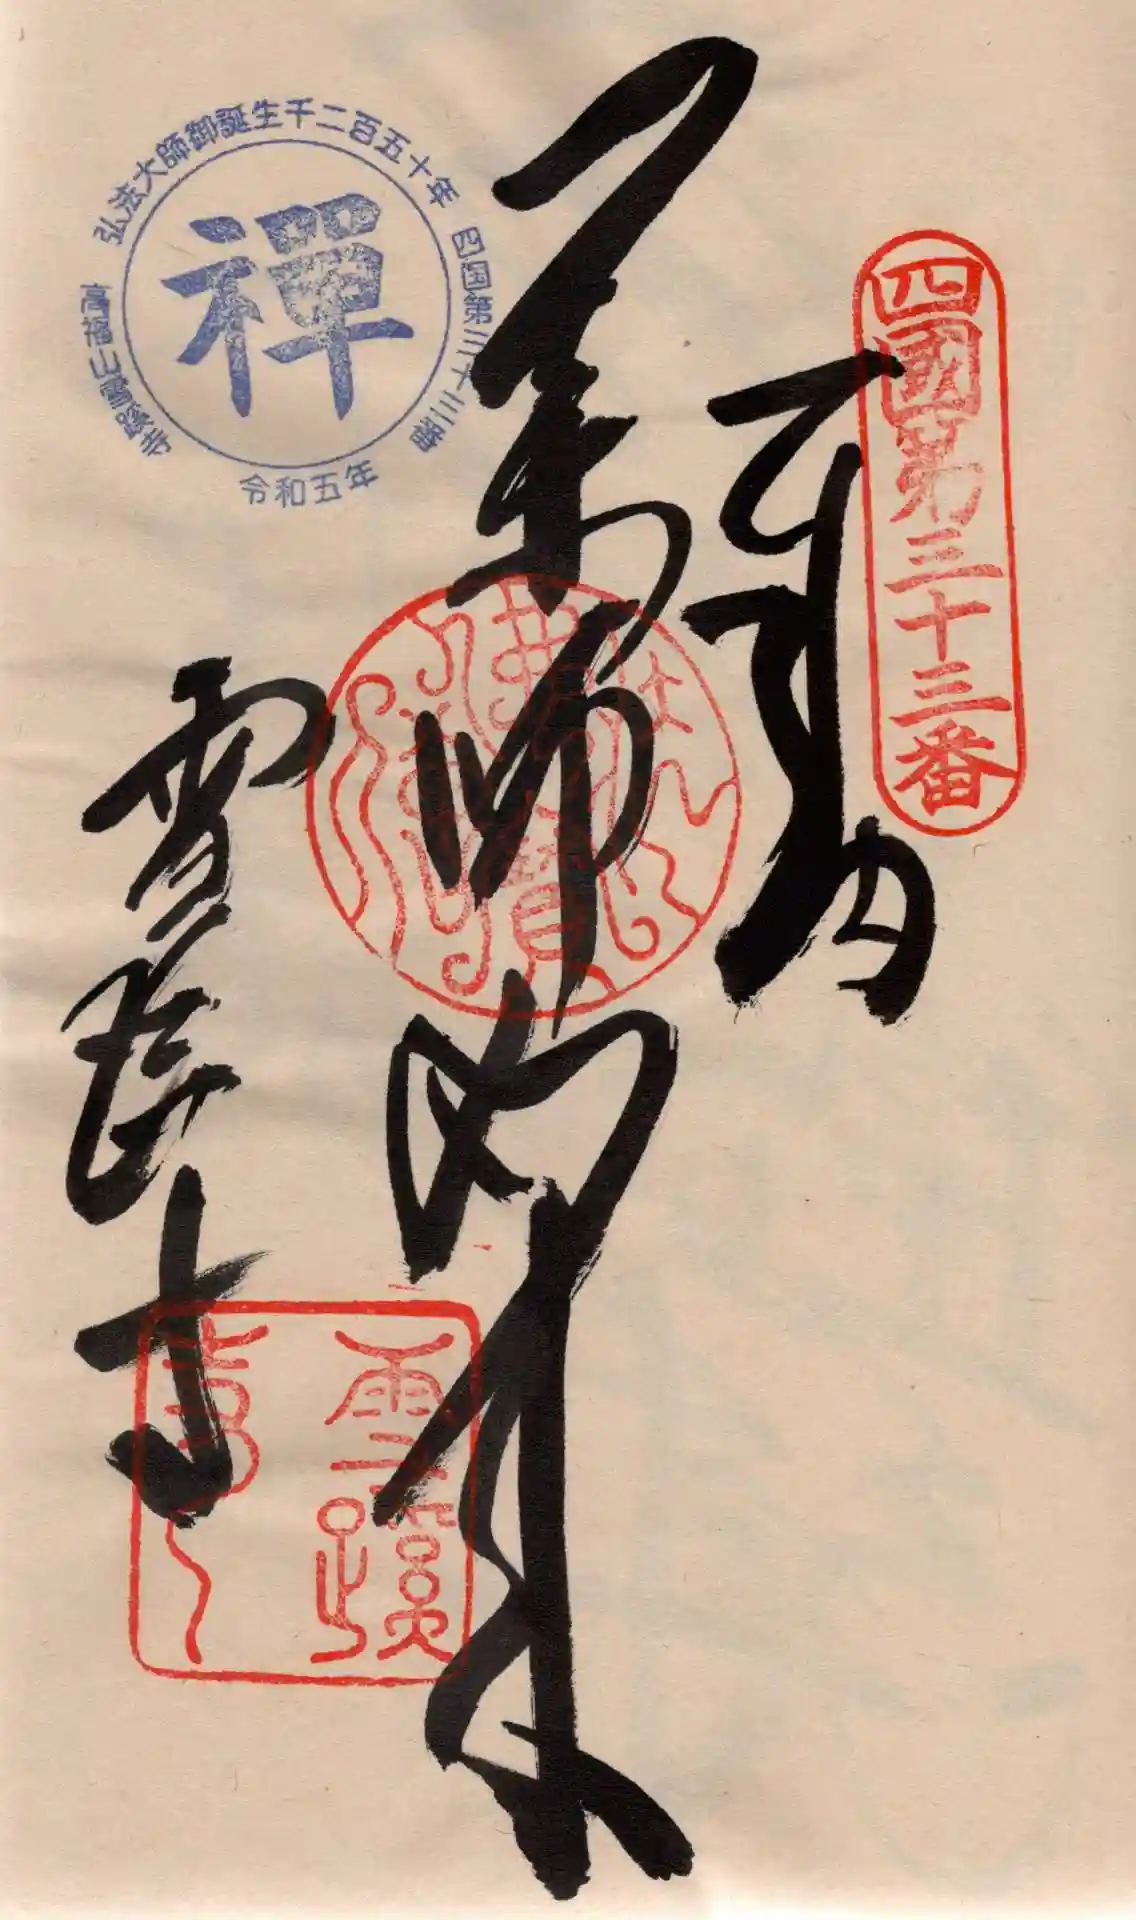 四國第三十三番
奉納
薬師如来
雪蹊寺
弘法大師御誕生千二百五十年
四国第三十三番
高福山雪蹊寺
禅
令和五年
雪蹊寺